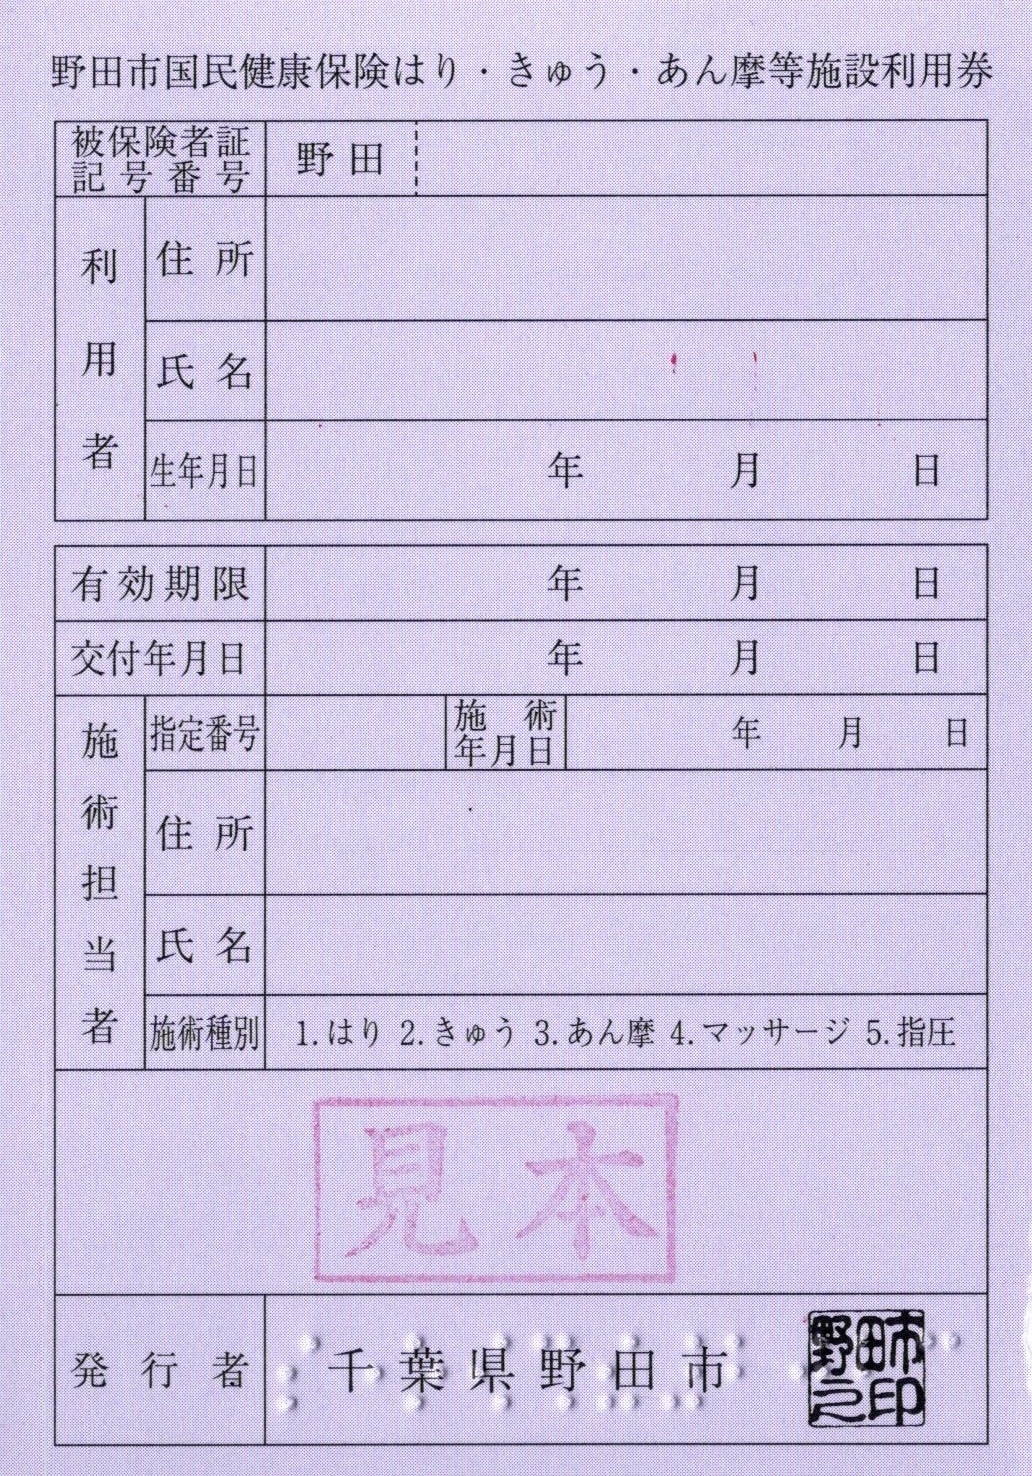 野田市国民健康保険はり・きゅう・あん摩等施設利用券
被保険者証
記号番号
野田
利用者
住所
氏名
生年月日 年 月 日
有効期限 年 月 日
交付年月日 年 月 日
施術担当者
指定番号
施術
年月日
年 月 日
住所
氏名
施術種別 1.はり 2.きゅう 3.あん摩 4.マッサージ 5.指圧
見本
発行者 千葉県野田市
野田市
之印